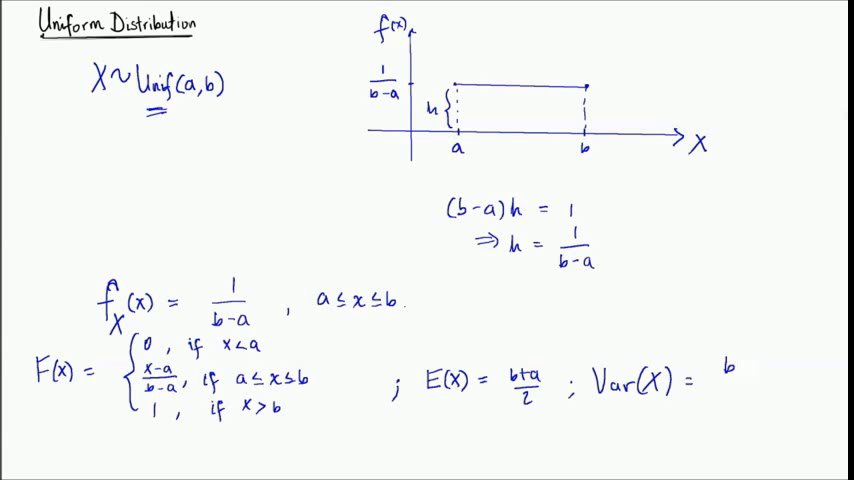 Uniform Distribution
X ~ Unif(a,b)
f(x)
1/(b-a)
h {
a b X
(b-a)h = 1
⇒ h = 1/(b-a)
f_X(x) = 1/(b-a) , a ≤ x ≤ b.
F(x) = { 0 , if x < a
(x-a)/(b-a), if a ≤ x ≤ b
1 , if x > b
; E(X) = (b+a)/2 ; Var(X) = b